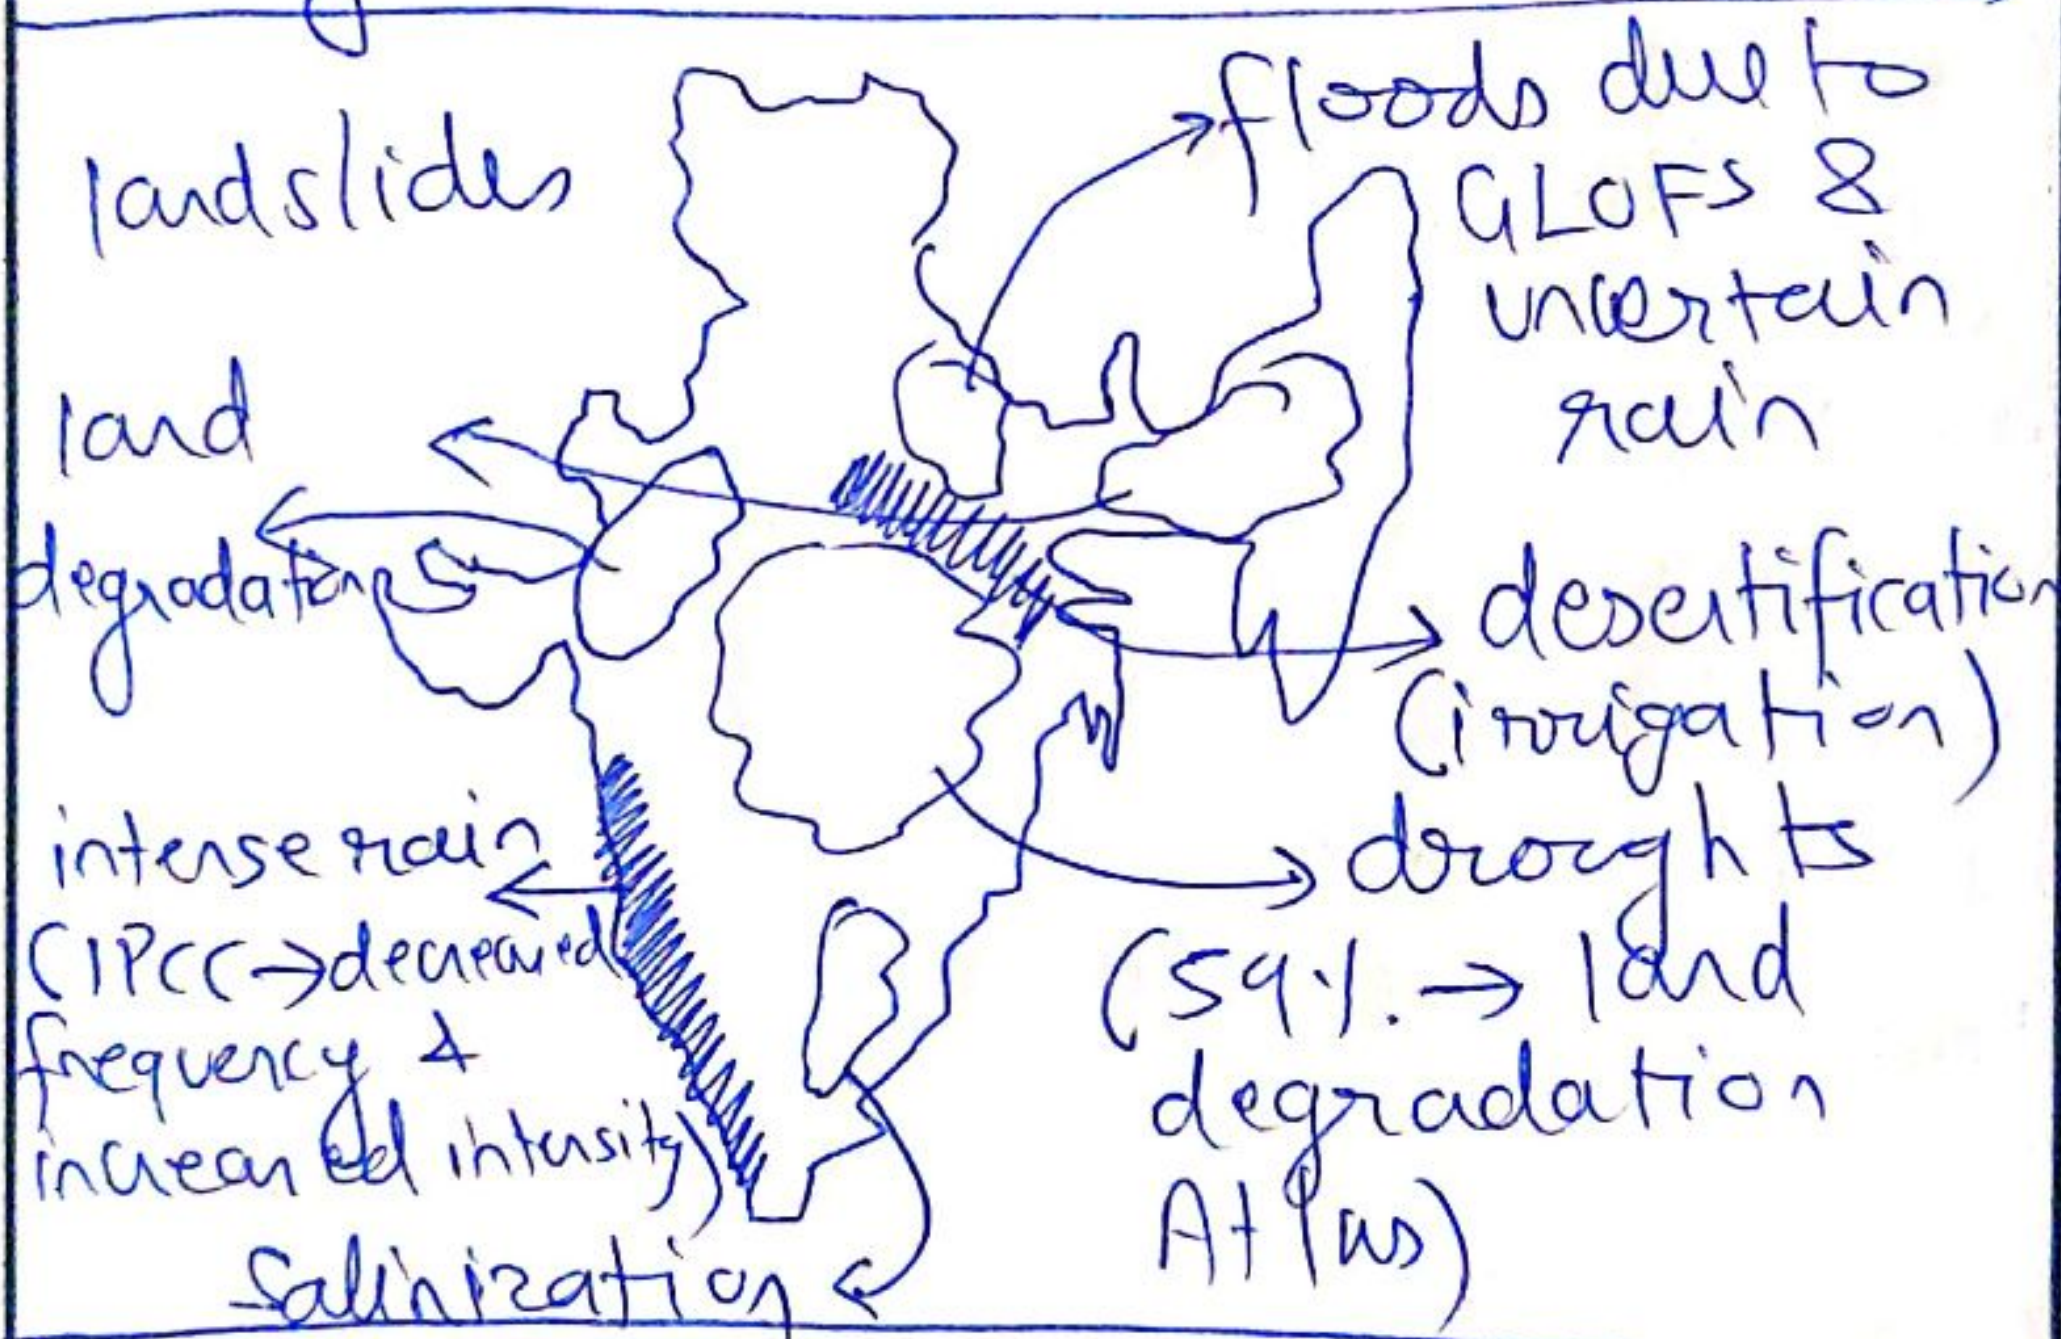 landslides
land
degradation
intense rain
(IPCC → decreased
frequency &
increased intensity)
Salinization
floods due to
GLOFS &
uncertain
rain
desertification
(irrigation)
droughts
(59%. → land
degradation
Atlas)